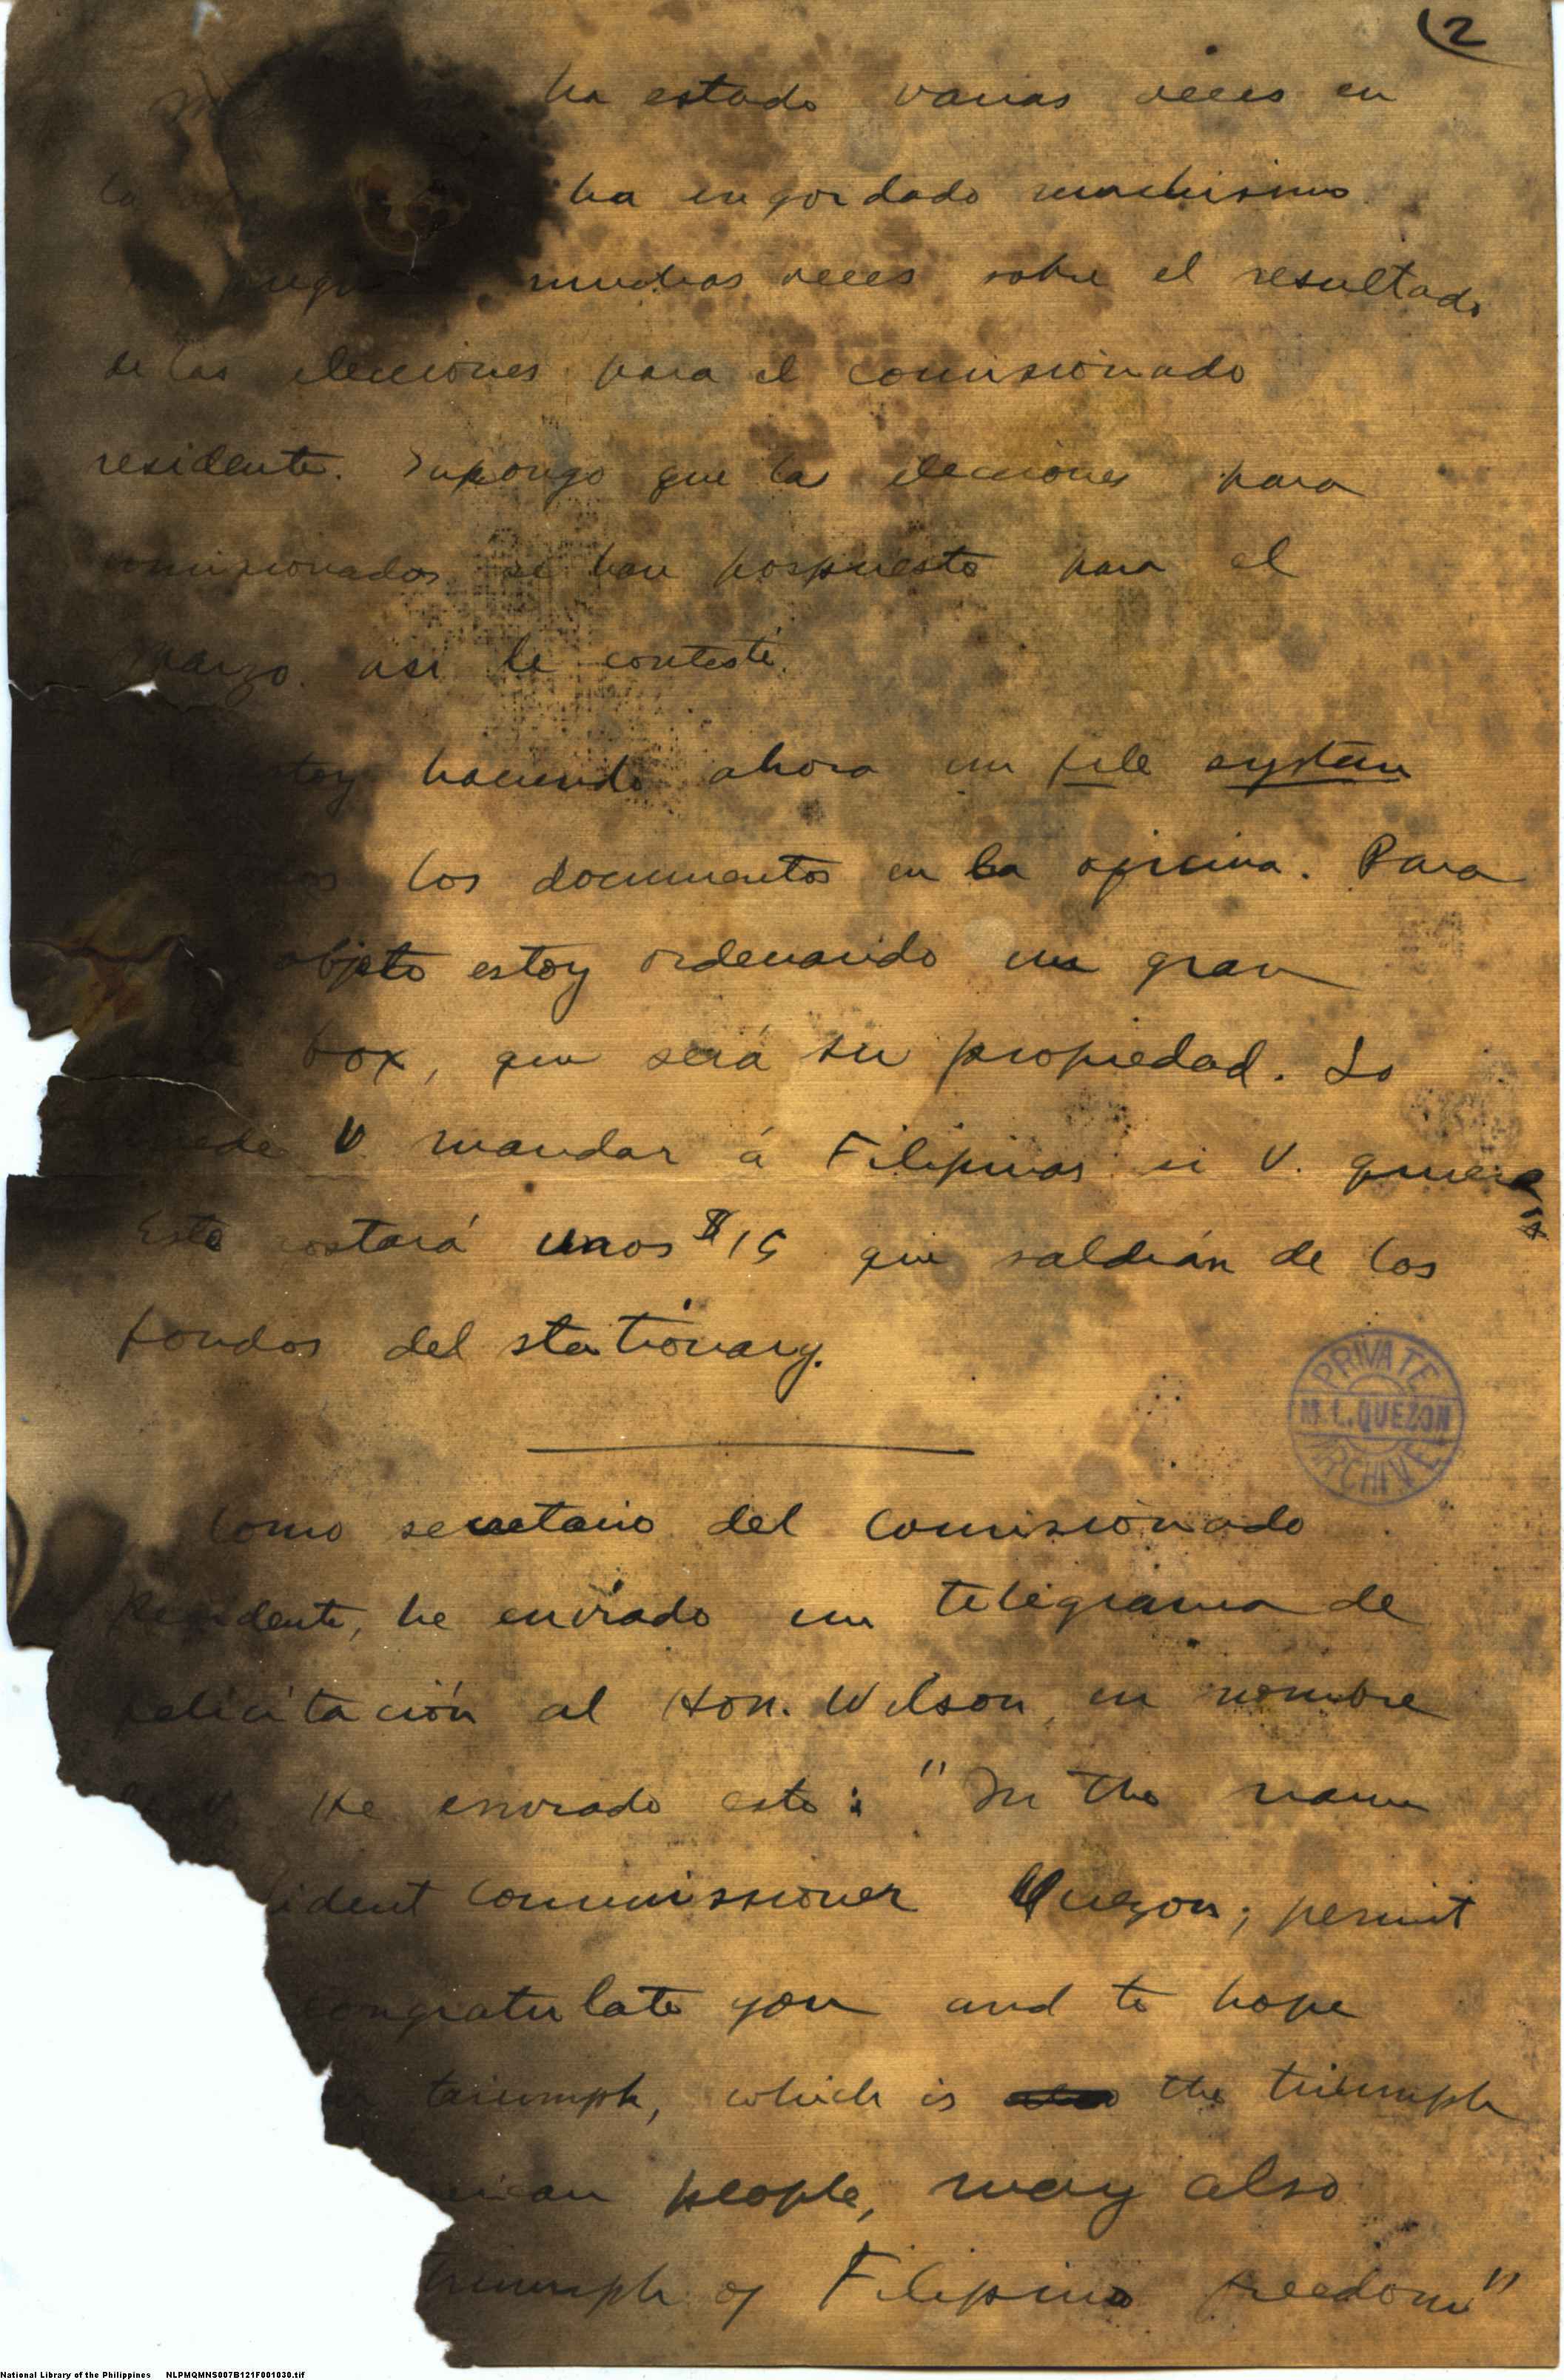 (2
ha estado varias veces en
la ha engordado muchisimo
muchas veces sobre el resultado
de las elecciones para el comisionado
residente. Supongo que las elecciones para
comisionados se han pospuesto para el
Marzo. asi le contesté.
estoy haciendo ahora un file system
los documentos en la oficina. Para
objeto estoy ordenando un gran
box, que será su propiedad. Lo
puede V. mandar á Filipinas si V. quiere
Esto costará unos $15 que saldrán de los
fondos del stationary.
Como secretario del Comisionado
Residente, he enviado un telegrama de
felicitación al Hon. Wilson, en nombre
He enviado esto: "In the name
ident Commissioner Quezon, permit
congratulate you and to hope
triumph, which is the triumph
rican people, may also
triumph of Filipino freedom"
PRIVATE
M. L. QUEZON
ARCHIVE
National Library of the Philippines NLPMQMNS007B121F001030.tif